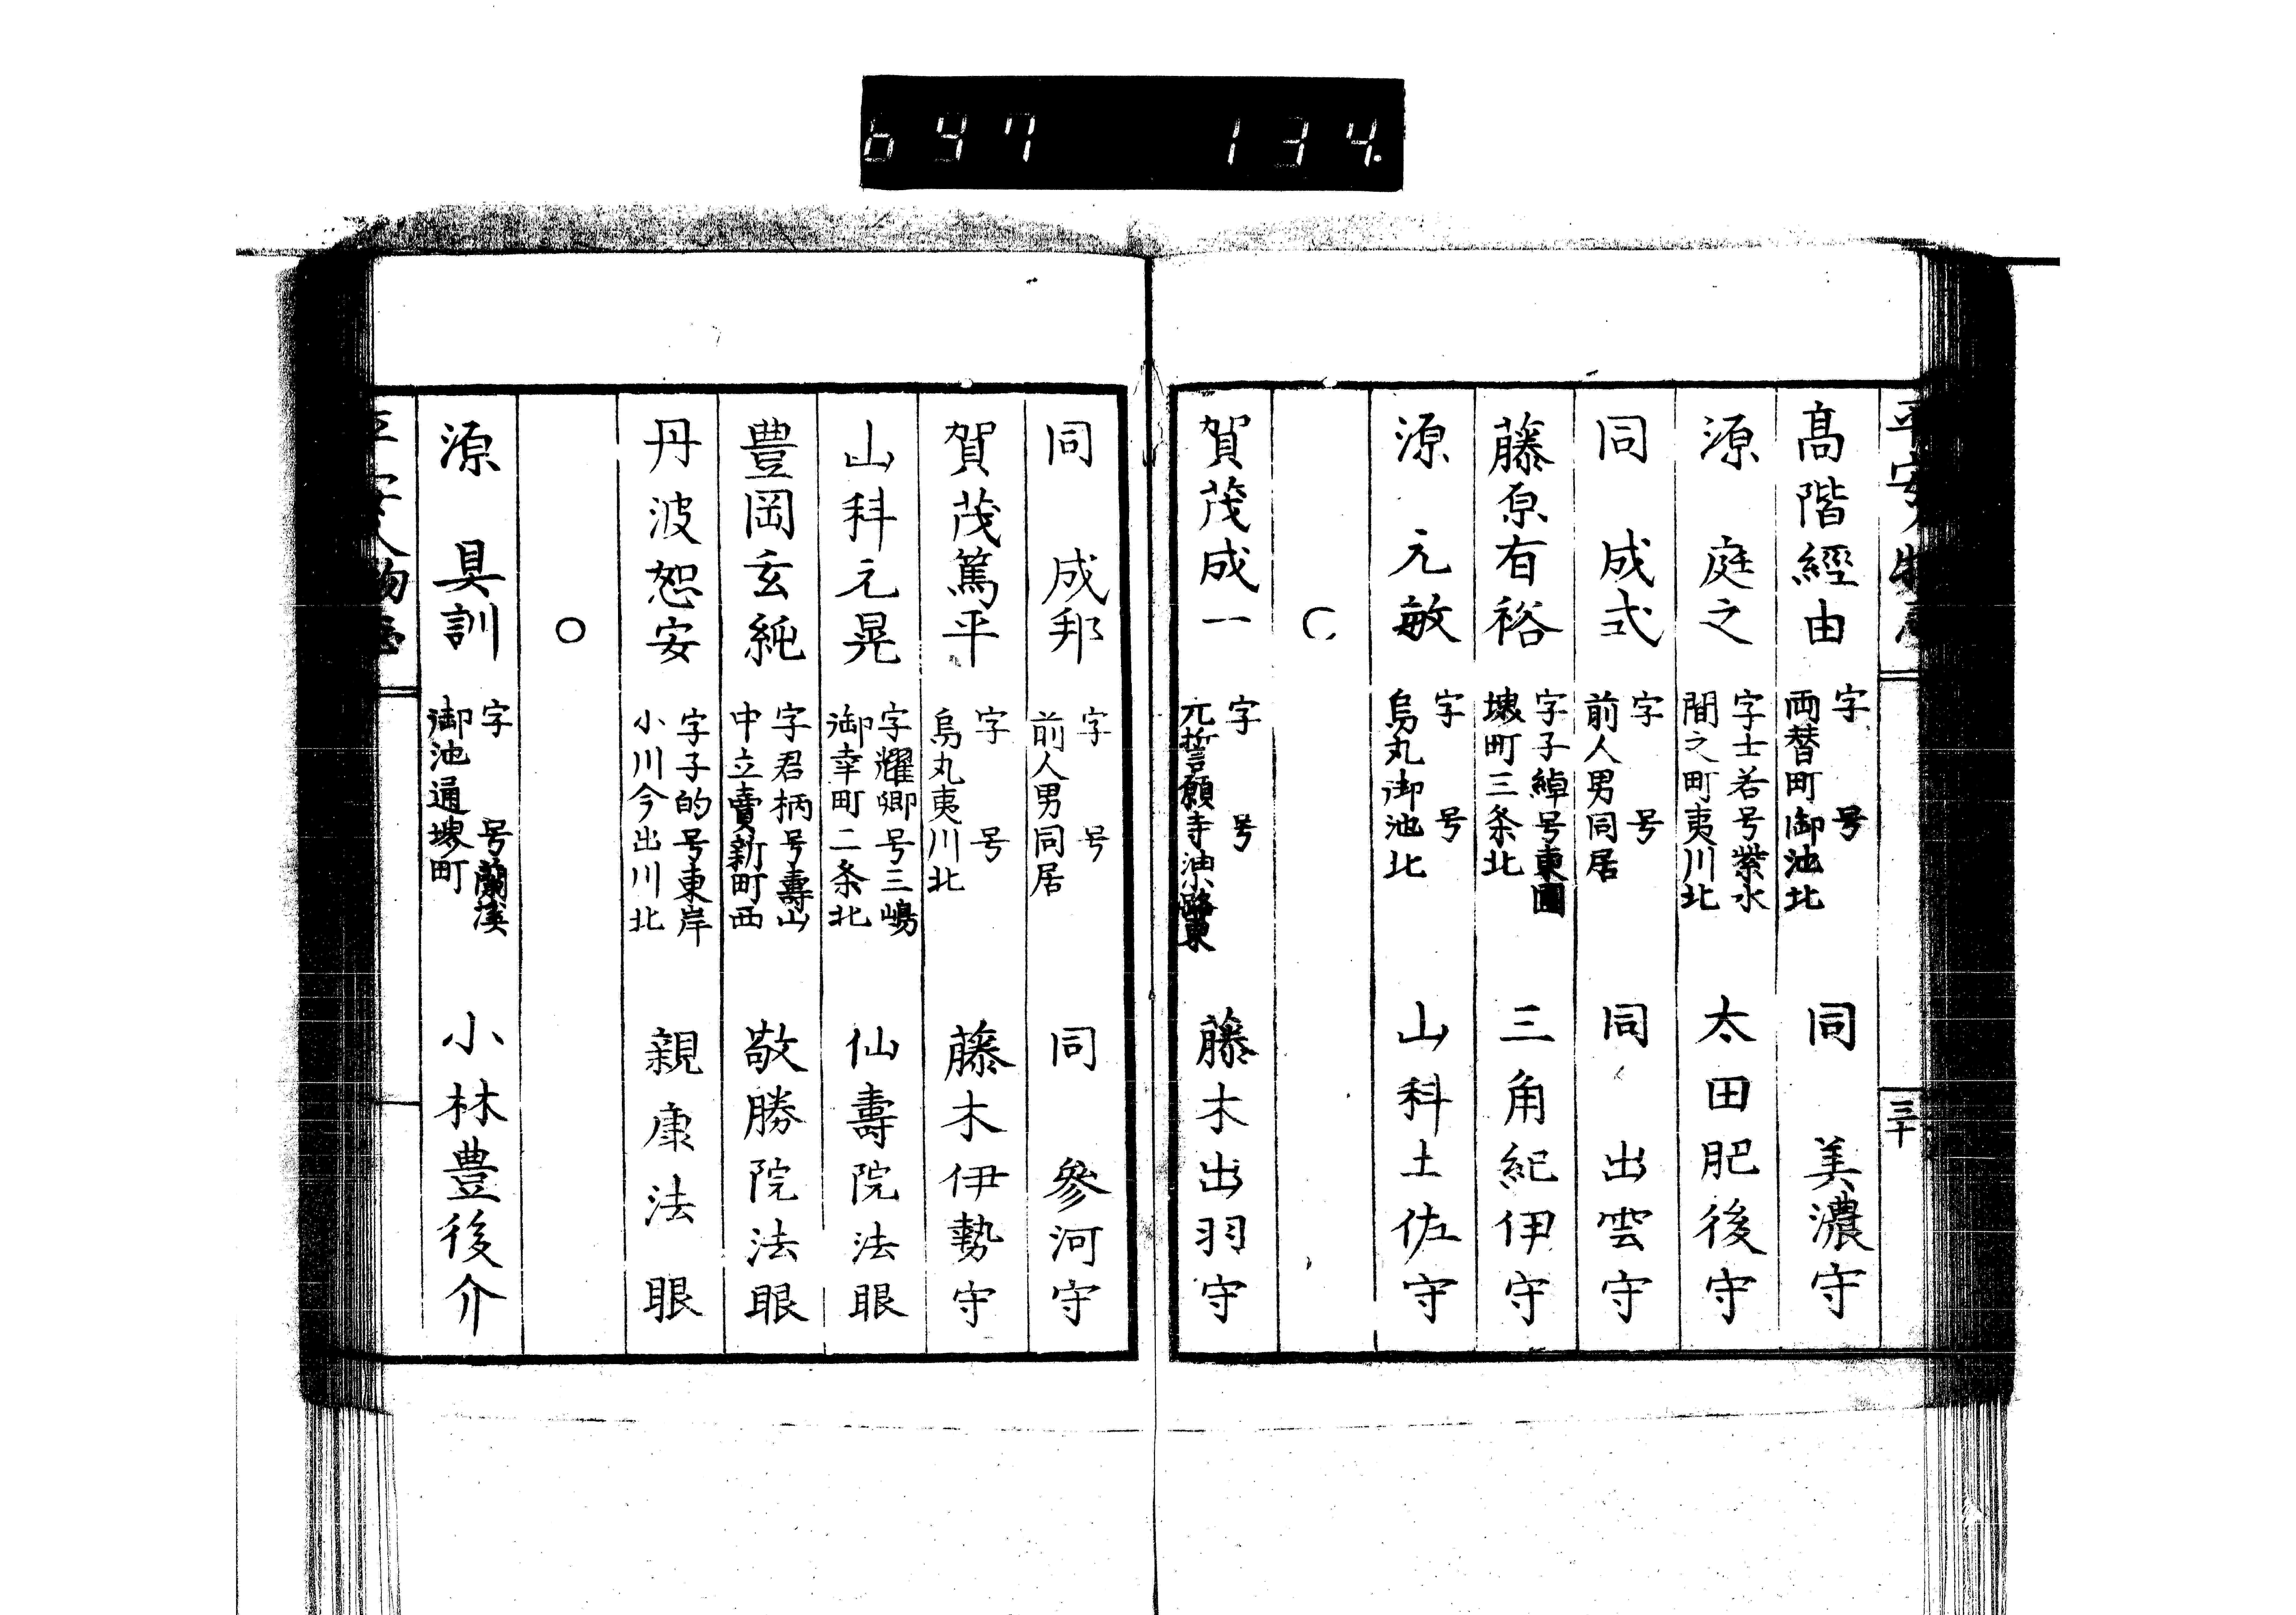 647 134.
平安人物志
三十
髙階經由 字 号 両替町御池北 同 美濃守
源 庭之 字士若号紫水 間之町夷川北 太田肥後守
同 成式 字 号 前人男同居 同 出雲守
藤原有裕 字子綽号東園 堺町三条北 三角紀伊守
源 元敏 字 号 烏丸御池北 山科土佐守
○
賀茂成一 字 号 元誓願寺油路東 藤木出羽守
同 成邦 字 号 前人男同居 同 參河守
賀茂篤平 字 号 烏丸夷川北 藤木伊勢守
山科元晃 字耀卿号三嶋 御幸町二条北 仙壽院法眼
豊岡玄純 字君柄号壽山 中立賣新町西 敬勝院法眼
丹波恕安 字子的号東岸 小川今出川北 親康法眼
○
源 具訓 字 号蘭溪 御池通堺町 小林豊後介
平安人物志